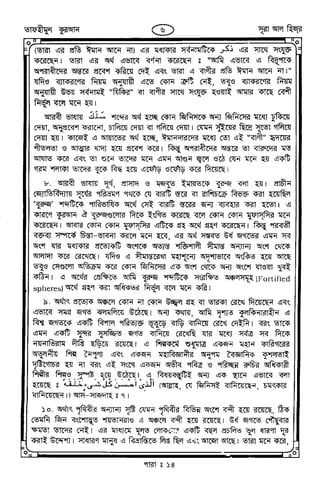 তাফহীমুল কুরআন
৬
সূরা আল হিজর
(তারা এর প্রতি ঈমান আনে না) এর মধ্যকার সর্বনামটিকে ذكر এর সাথে সংযুক্ত
করেছেন। তারা এর অর্থ এভাবে বর্ণনা করেছেন : "আমি এভাবে এ বিদ্রূপকে
অপরাধীদের অন্তরে প্রবেশ করিয়ে দেই এবং তারা এ বাণীর প্রতি ঈমান আনে না।"
যদিও ব্যাকরণের নিয়ম অনুযায়ী এতে কোন ত্রুটি নেই, তবুও ব্যাকরণের নিয়ম
অনুযায়ী উভয় সর্বনামই "যিকির" বা বাণীর সাথে সংযুক্ত হওয়াই আমার কাছে বেশী
নির্ভুল বলে মনে হয়।
আরবী ভাষায় শব্দের অর্থ হচ্ছে কোন জিনিসকে অন্য জিনিসের মধ্যে ঢুকিয়ে
দেয়া, অনুপ্রবেশ করানো, চালিয়ে দেয়া বা গলিয়ে দেয়া। যেমন সুঁইয়ের ছিদ্রে সূতো গলিয়ে
দেয়া হয়। কাজেই এ আয়াতের অর্থ হচ্ছে, ঈমানদারদের মধ্যে তো এই "বাণী" হৃদয়ের
শীতলতা ও আত্মার খাদ্য হয়ে প্রবেশ করে। কিন্তু অপরাধীদের অন্তরে তা বারুদের মত
আঘাত করে এবং তা শুনে তাদের মনে এমন আগুন জ্বলে ওঠে যেন মনে হয় একটি
গরম শলাকা তাদের বুকে বিদ্ধ হয়ে এফোঁড় ওফোঁড় করে দিয়েছে।
৮. আরবী ভাষায় দূর্গ, প্রাসাদ ও মজবুত ইমারতকে বুরুজ বলা হয়। প্রাচীন
"বুরুজ" শব্দটিকে পারিভাষিক অর্থে সেই বারটি স্তরের জন্য ব্যবহার করা হতো। এ
কারণে কুরআন ঐ বুরুজগুলোর দিকে ইংগিত করেছে বলে কোন কোন মুফাস্‌সির মনে
করেছেন। আবার কোন কোন মুফাস্‌সির এটিকে গ্রহ অর্থে গ্রহণ করেছেন। কিন্তু পরবর্তী
বক্তব্য সম্পর্কে চিন্তা-ভাবনা করলে মনে হবে, এর অর্থ সম্ভবত উর্ধ জগতের এমন সব
অংশ যার মধ্যকার প্রত্যেকটি অংশকে অত্যন্ত শক্তিশালী সীমান্ত অন্যান্য অংশ থেকে
আলাদা করে রেখেছে। যদিও এ সীমান্তরেখা মহাশূন্যে অদৃশ্যভাবে অংকিত হয়ে আছে
তবুও সেগুলো অতিক্রম করে কোন জিনিসের এক অংশ থেকে অন্য অংশে যাওয়া খুবই
কঠিন। এ অর্থের প্রেক্ষিতে আমি বুরুজ শব্দটিকে সংরক্ষিত অঞ্চলসমূহ (Fortified
spheres) অর্থে গ্রহণ করা অধিকতর নির্ভুল বলে মনে করি।
৯. অর্থাৎ প্রত্যেক অঞ্চলে কোন না কোন উজ্জ্বল গ্রহ বা তারকা রেখে দিয়েছেন এবং
এভাবে সমগ্র জগত ঝলমলিয়ে উঠেছে। অন্য কথায়, আমি দৃশ্যত কুলকিনারাহীন এ
বিশ্ব জগতকে একটি বিশাল পরিত্যক্ত ভূতুড়ে বাড়ি বানিয়ে রেখে দেইনি। বরং তাকে
এমন একটি সুন্দর সুসজ্জিত জগত বানিয়ে রেখেছি যার মধ্যে সর্বত্র সব দিকে
নয়নাভিরাম দীপ্তি ছড়িয়ে রয়েছে। এ শিল্পকর্মে শুধুমাত্র একজন মহান কারিগরের
অতুলনীয় শিল্প নৈপুণ্য এবং একজন মহাবিজ্ঞানীর অনুপম বৈজ্ঞানিক কুশলতাই
দৃষ্টিগোচর হয় না বরং এই সংগে একজন অতীব পবিত্র ও পরিচ্ছন্ন রুচির অধিকারী
শিল্পীর শিল্পও সুস্পষ্ট হয়ে উঠেছে। এ বিষয়বস্তুটিই অন্য এক স্থানে এভাবে বলা
হয়েছে : الَّذِي أَحْسَنَ كُلَّ شَيْءٍ خَلَقَهُ (আল্লাহ, যে জিনিসই বানিয়েছেন, চমৎকার
বানিয়েছেন।) আস-সাজদাহ : ৭।
১০. অর্থাৎ পৃথিবীর অন্যান্য সৃষ্টি যেমন পৃথিবীর বিভিন্ন অংশে বন্দী হয়ে রয়েছে, ঠিক
তেমনি জিন বংশোদ্ভূত শয়তানরাও এ অঞ্চলে বন্দী হয়ে রয়েছে। উর্ধ জগতে পৌঁছুবার
ক্ষমতা তাদের নেই। এর মাধ্যমে মূলত লোকদের একটি বহুল প্রচলিত ভুল ধারণা দূর
করাই উদ্দেশ্য। সাধারণ মানুষ এ বিভ্রান্তিতে লিপ্ত ছিল এবং আজো আছে। তারা মনে করে,
পারা : ১৪